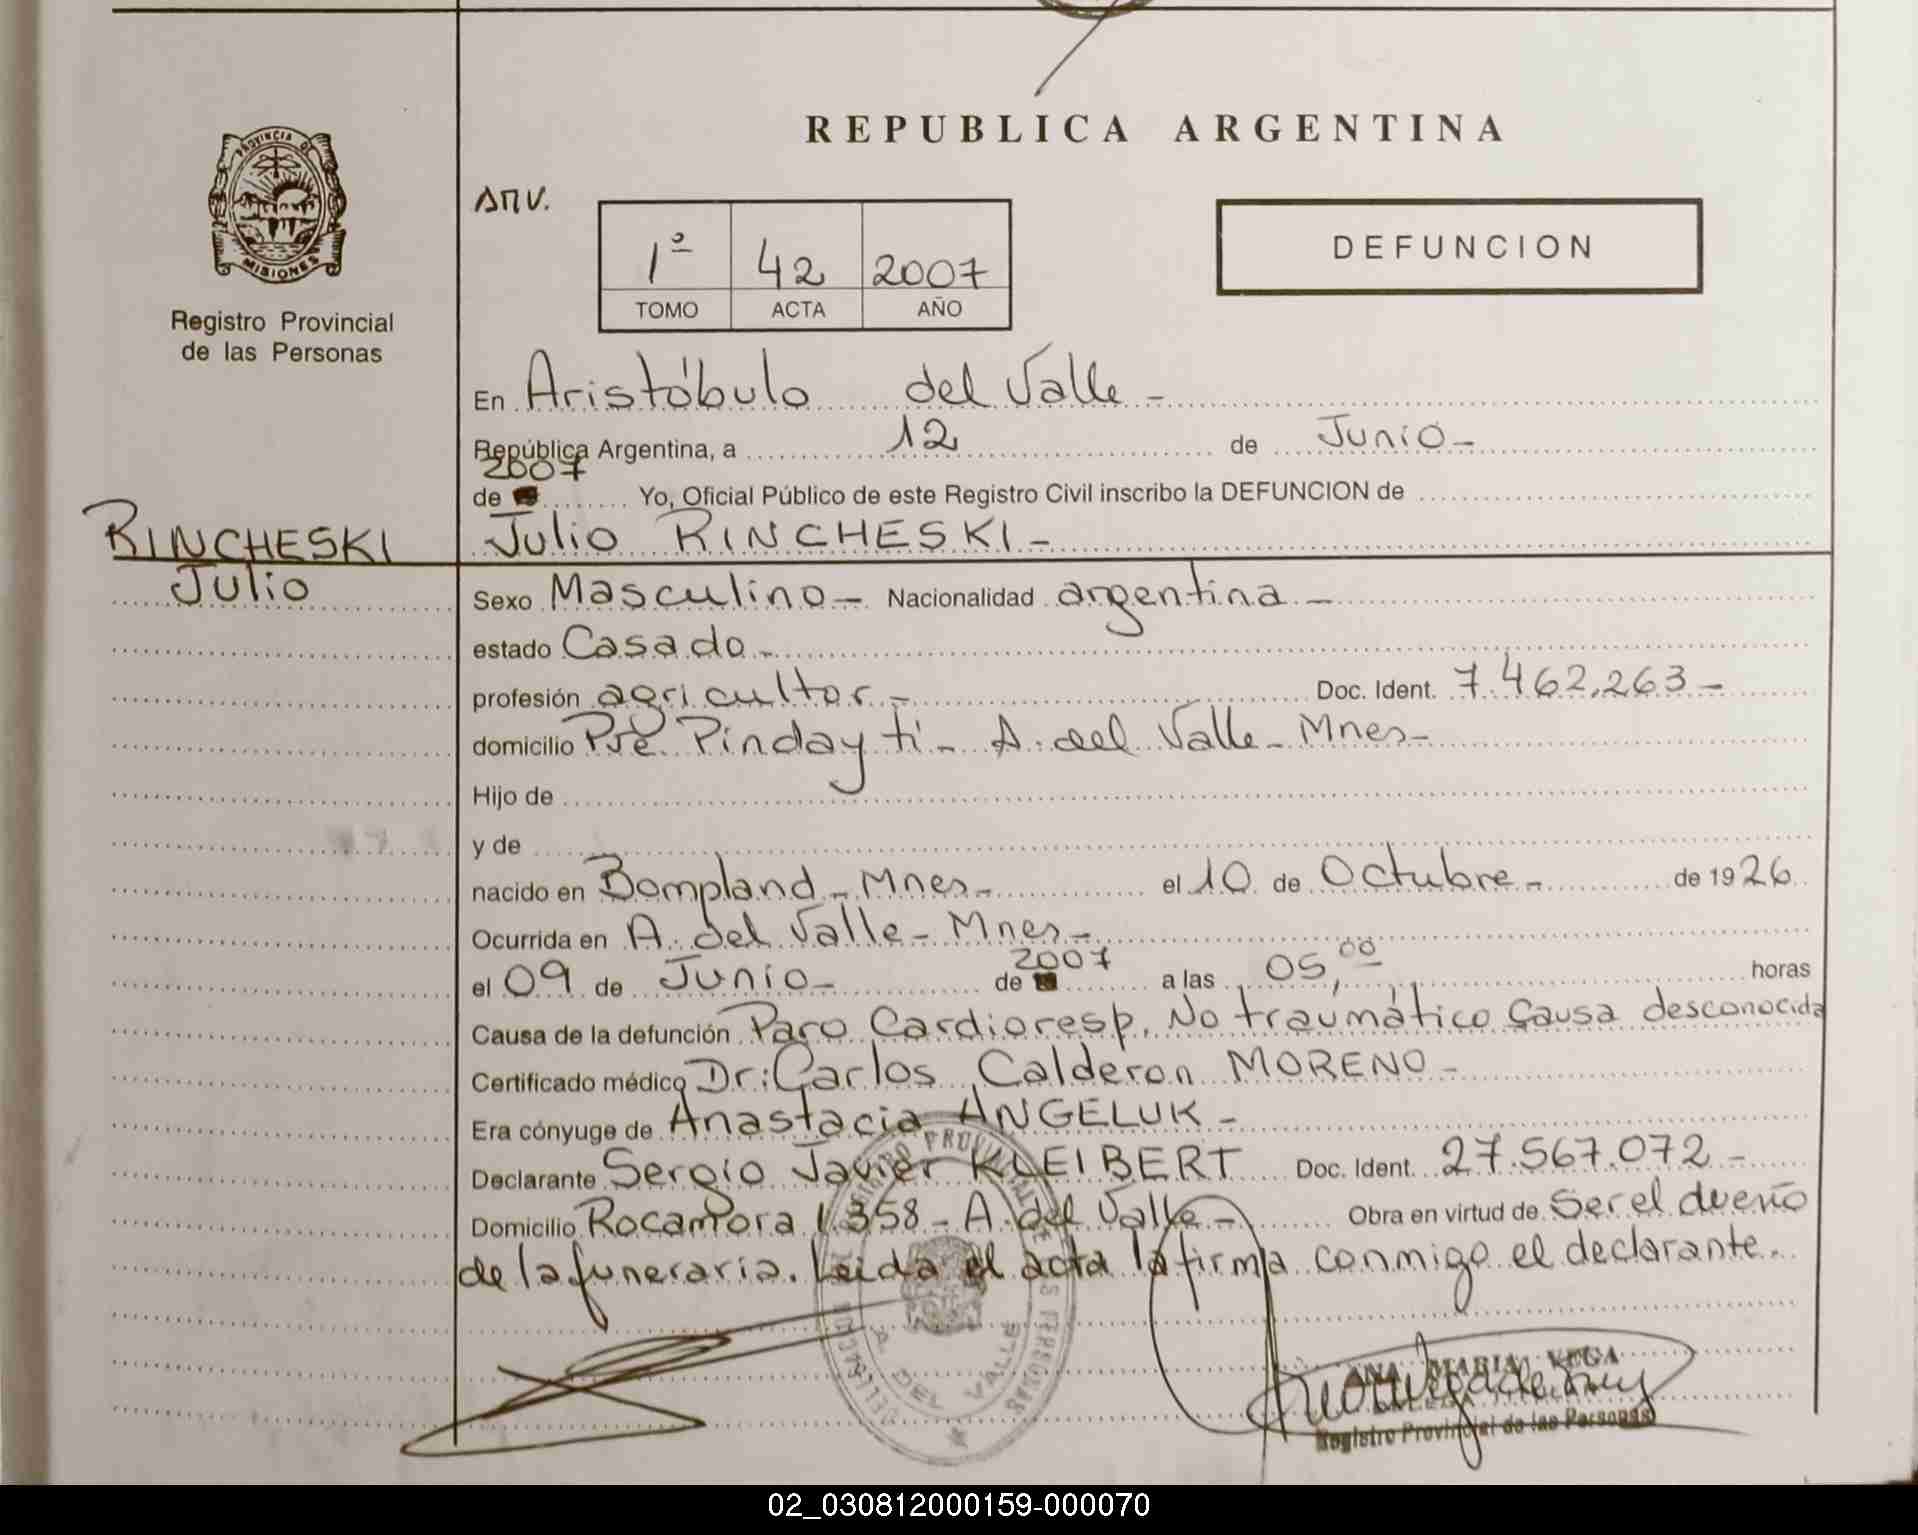 REPUBLICA ARGENTINA
PROVINCIA DE
MISIONES
Registro Provincial
de las Personas
ANV.
1º 42 2007
TOMO ACTA AÑO
DEFUNCION
En Aristóbulo del Valle -
República Argentina, a 12 de Junio -
2007
de Yo, Oficial Público de este Registro Civil inscribo la DEFUNCION de
RINCHESKI
Julio
Julio RINCHESKI -
Sexo Masculino - Nacionalidad argentina -
estado Casado -
profesión agricultor - Doc. Ident. 7.462.263 -
domicilio Pje Pindayti - A. del Valle - Mnes -
Hijo de
y de
nacido en Bompland - Mnes - el 10 de Octubre - de 1926
Ocurrida en A. del Valle - Mnes -
el 09 de Junio - de 2007 a las 05,00 horas
Causa de la defunción Paro Cardioresp. No traumático Causa desconocida
Certificado médico Dr: Carlos Calderon MORENO -
Era cónyuge de Anastacia ANGELUK -
Declarante Sergio Javier KLEIBERT Doc. Ident. 27.567.072 -
Domicilio Rocamora 1.358 - A. del Valle - Obra en virtud de Ser el dueño
de la funeraria. Leida el acta la firma conmigo el declarante.
A. DEL VALLE
ANA MARIA VEGA
Registro Provincial de las Personas
02_030812000159-000070